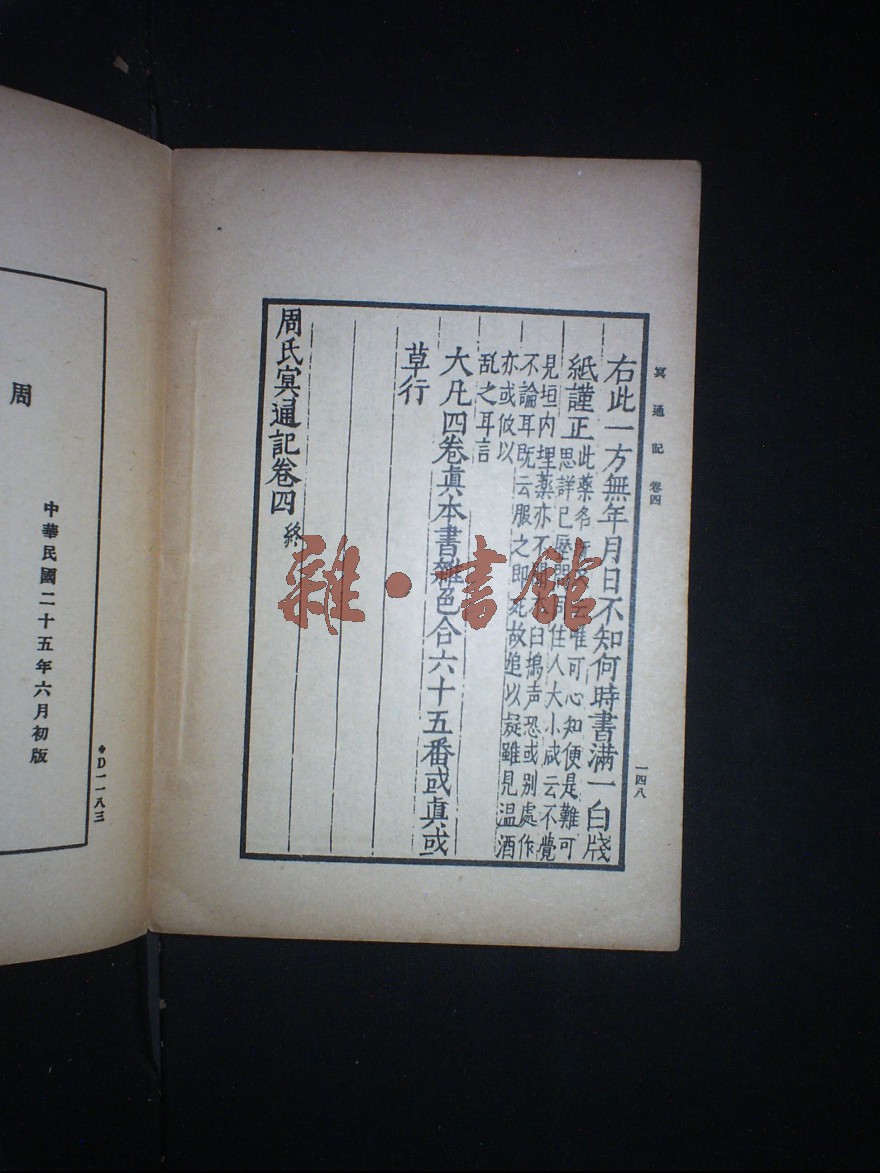 冥通記 卷四
一四八
右此一方無年月日不知何時書滿一白牋
紙謹正
此藥名
唯可心知便是難可
思詳已歷問同住人大小咸云不覺
見垣内埋藥亦不
臼搗声恐或別處作
不論耳既云服之即死故追以疑雖見温酒
亦或攸以
乱之耳言
大凡四卷眞本書雜色合六十五番或眞或
草行
周氏冥通記卷四 終
雜·書館
周
中華民國二十五年六月初版
D一一八三